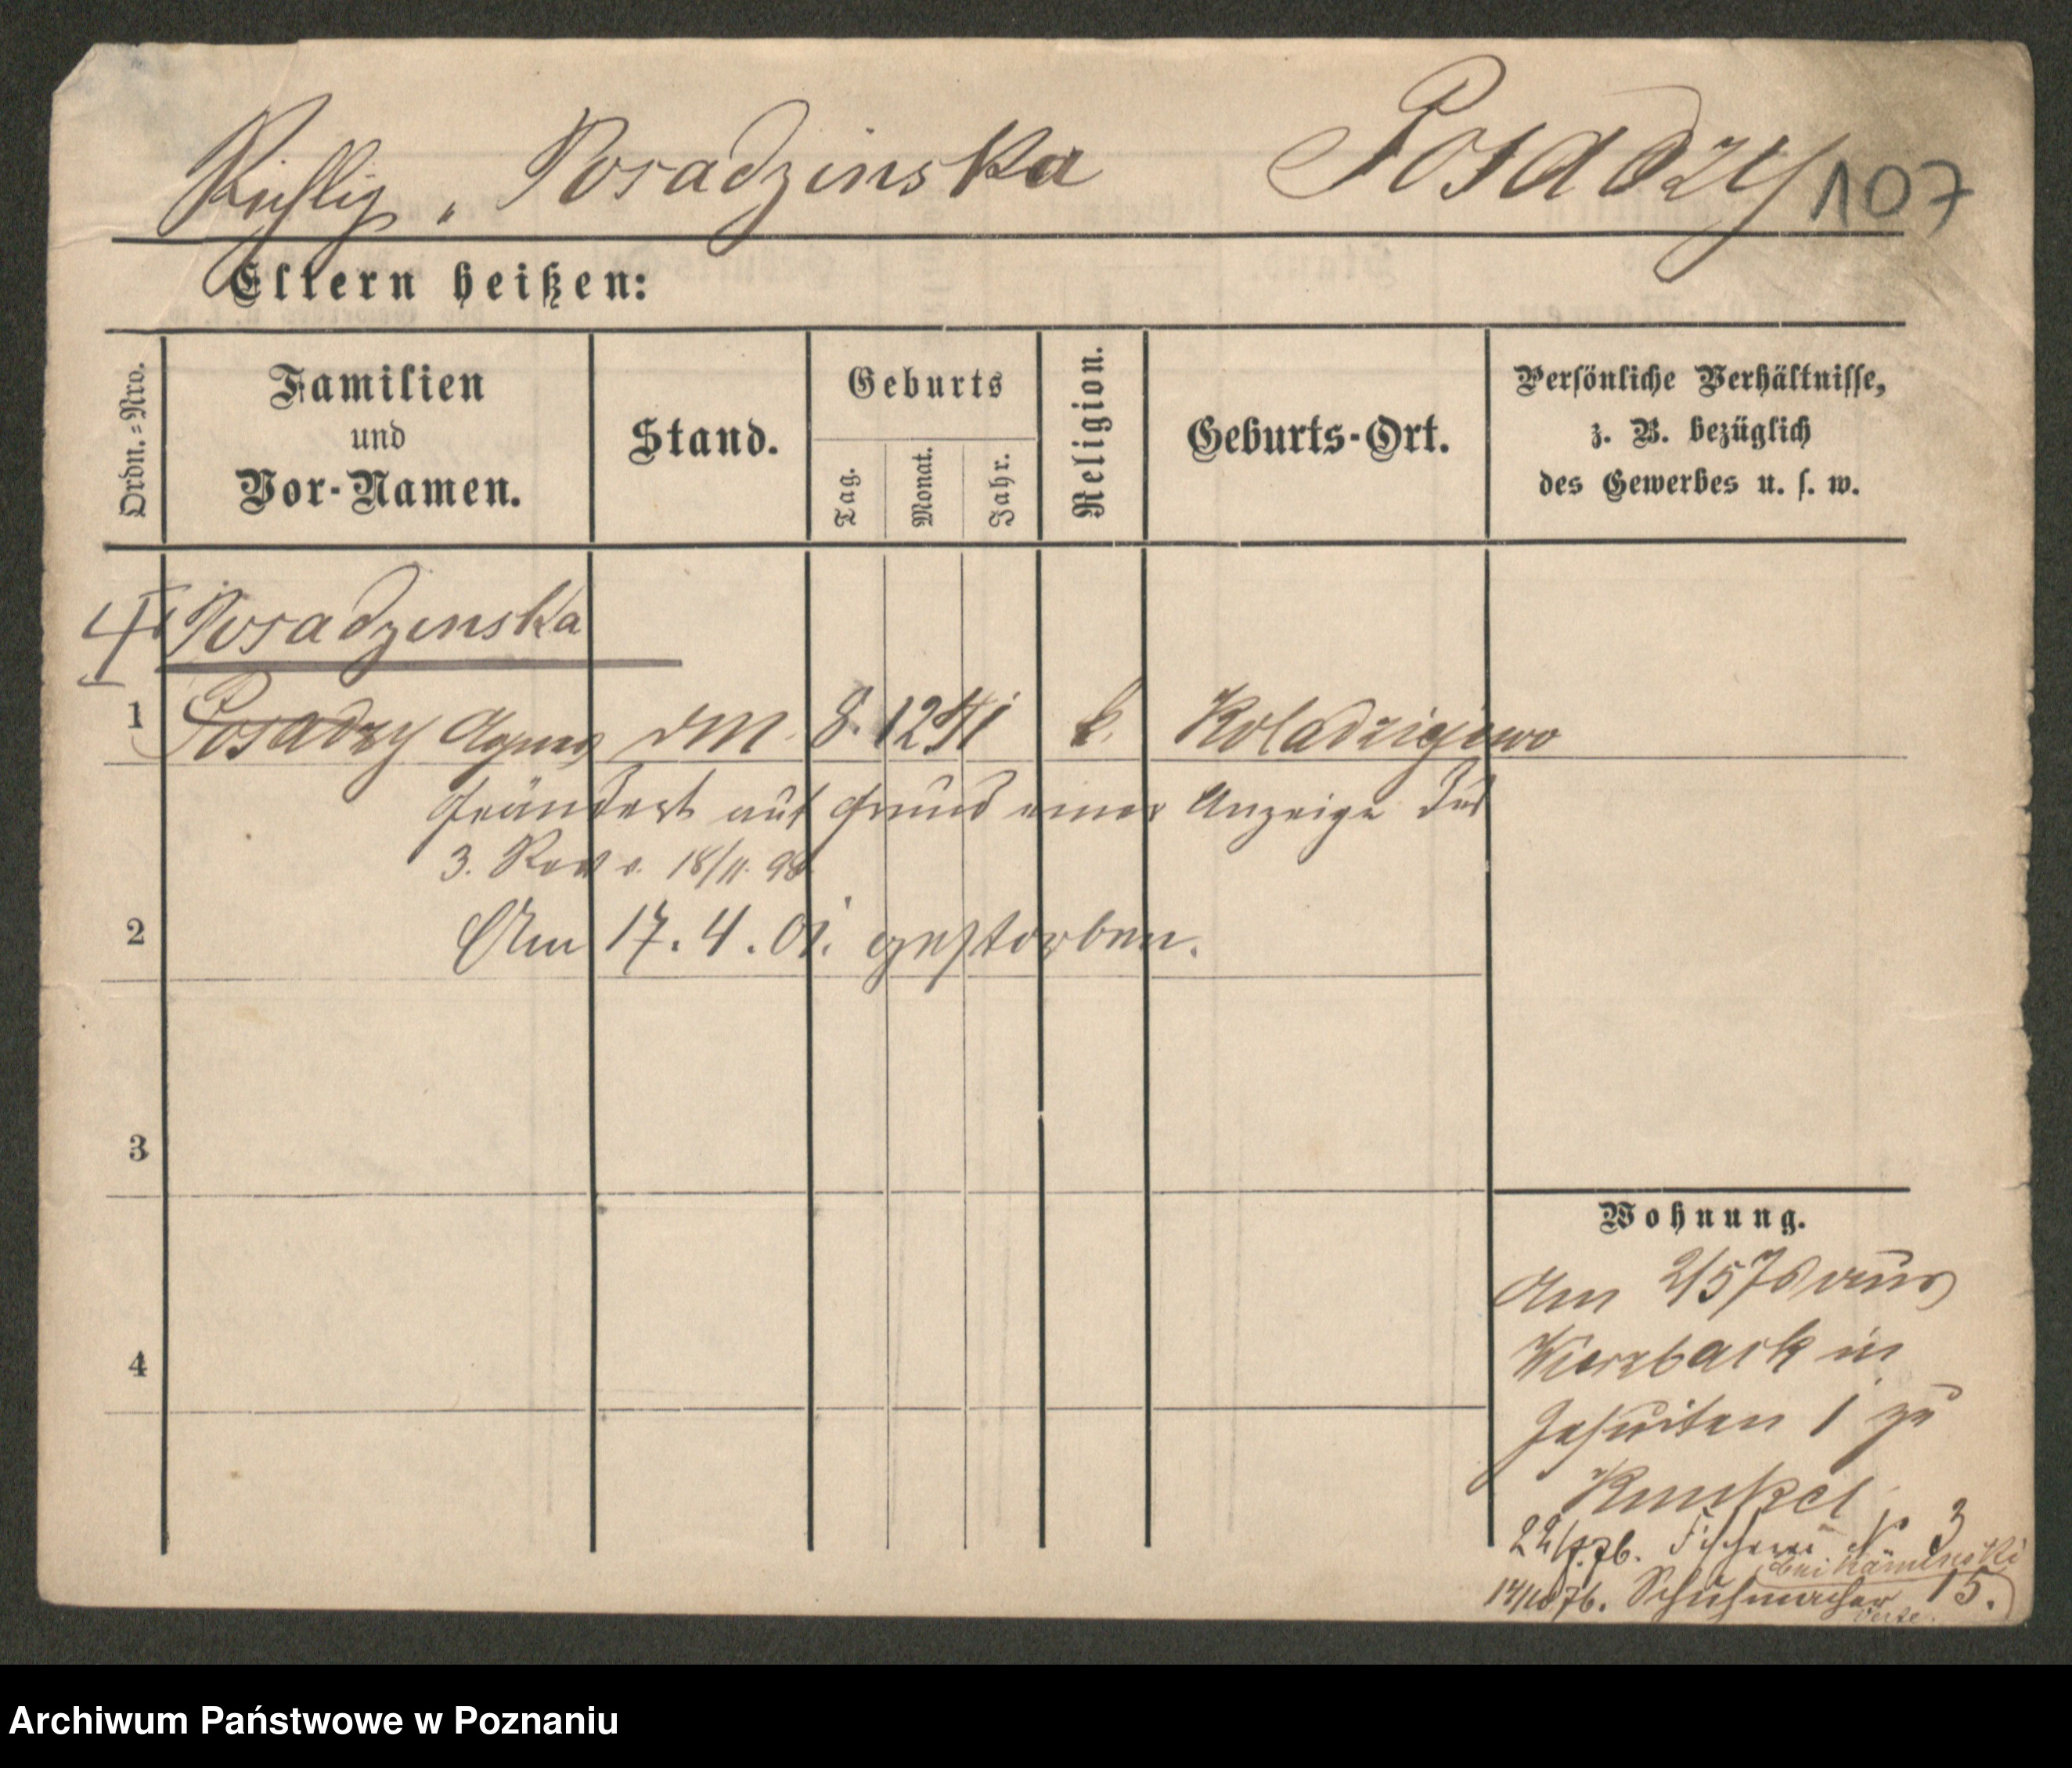 Richtig „Posadzinska Posadzy 107
Eltern heißen:
Ordn.-Nro.
Familien
und
Vor-Namen.
Stand.
Geburts
Tag.
Monat.
Jahr.
Religion.
Geburts-Ort.
Persönliche Verhältnisse,
z. B. bezüglich
des Gewerbes u. s. w.
Posadzinska
1 Posadzy Agnes DM. 8. 12 41 k. Kolodziejewo
Geändert auf Grund einer Anzeige des
3. Rev v. 18/11. 98
2 Am 17. 4. 01. gestorben.
3
4
Wohnung.
Am 2/5 76 aus
Wierzbark in
Jesuiten 1 zu
Kunkel
22/7. 76. Fischerei No 3
bei Kaminski
14/10 76. Schuhmacher 15.
Archiwum Państwowe w Poznaniu